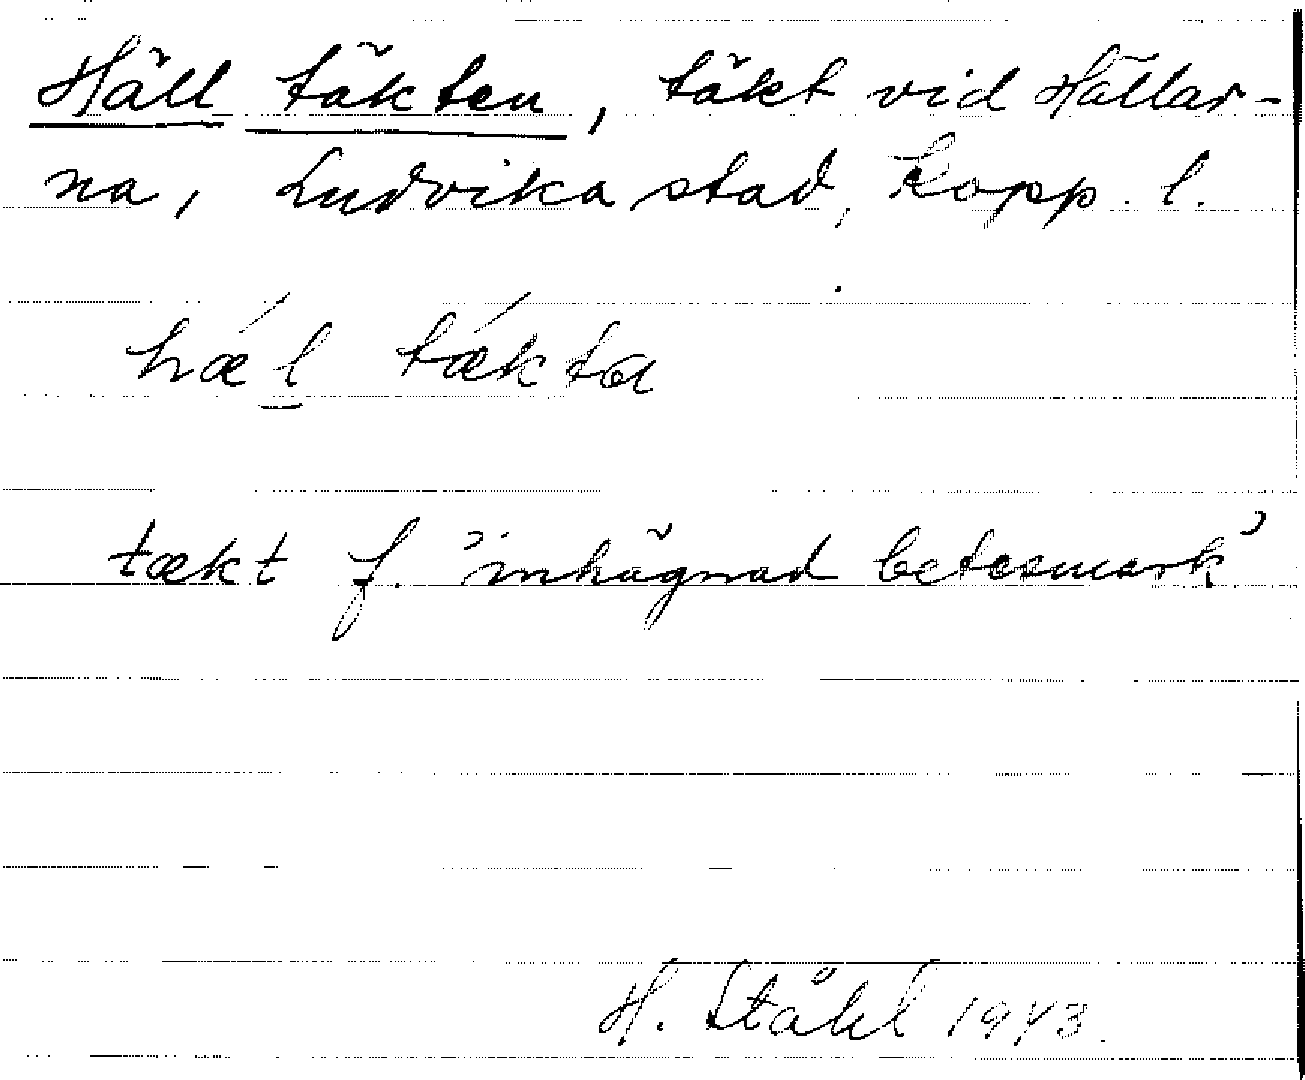 Häll täkten, täkt vid Hällar-
na, Ludvika stad, Kopp. l.
hǽl̲ tǽkta
tækt f. 'inhägnad betesmark'
H. Ståhl 1943.